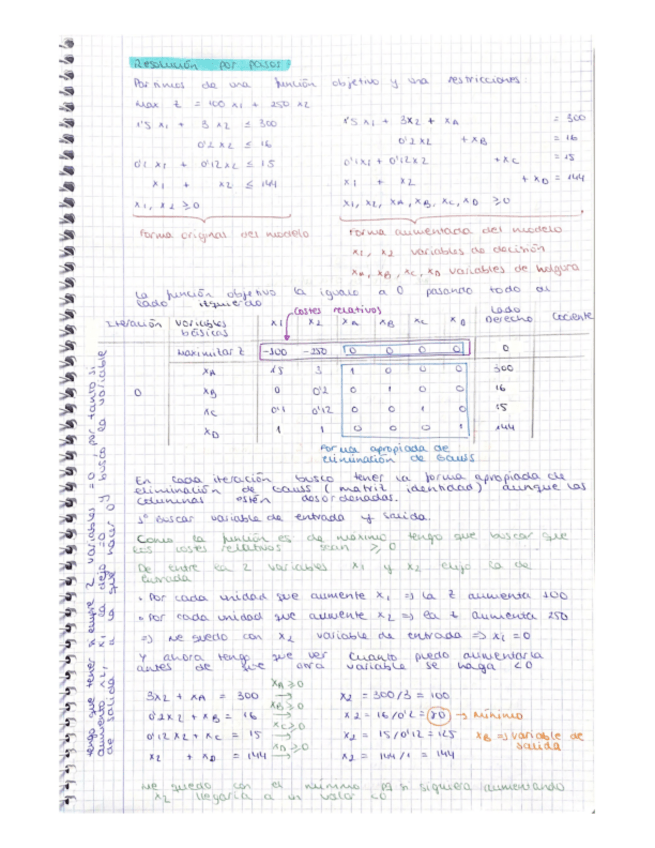 Resolución por pasos:
Partimos de una función objetivo y una restricciones:
Max Z = 100 x1 + 250 x2
1'5 x1 + 3 x2 ≤ 300
0'2 x2 ≤ 16
0'1 x1 + 0'12 x2 ≤ 15
x1 + x2 ≤ 144
x1, x2 ≥ 0
Forma original del modelo
1'5 x1 + 3x2 + xA = 300
0'2 x2 + xB = 16
0'1x1 + 0'12x2 + xC = 15
x1 + x2 + xD = 144
x1, x2, xA, xB, xC, xD ≥ 0
Forma aumentada del modelo
x1, x2 variables de decisión
xA, xB, xC, xD variables de holgura
La función objetivo la igualo a 0 pasando todo al
lado izquierdo
(costes relativos)
Iteración variables básicas x1 x2 xA xB xC xD Lado Derecho Cociente
Maximizar Z -100 -250 0 0 0 0 0
xA 1'5 3 1 0 0 0 300
0 xB 0 0'2 0 1 0 0 16
xC 0'1 0'12 0 0 1 0 15
xD 1 1 0 0 0 1 144
Forma apropiada de
eliminación de Gauss
En cada iteración busco tener la forma apropiada de
eliminación de Gauss (matriz identidad) aunque las
columnas estén desordenadas.
1º buscar variable de entrada y salida.
Como la función es de máximo tengo que buscar que
los costes relativos sean ≥ 0
De entre las 2 variables x1 y x2 elijo la de
entrada
• Por cada unidad que aumente x1 => la Z aumenta 100
• Por cada unidad que aumente x2 => la Z aumenta 250
=> me quedo con x2 variable de entrada => x1 = 0
Y ahora tengo que ver cuanto puedo aumentarla
antes de que otra variable se haga < 0
3x2 + xA = 300 xA ≥ 0 → x2 = 300/3 = 100
0'2x2 + xB = 16 xB ≥ 0 → x2 = 16/0'2 = 80 → mínimo
0'12x2 + xC = 15 xC ≥ 0 → x2 = 15/0'12 = 125
xB => variable de
salida
x2 + xD = 144 xD ≥ 0 → x2 = 144/1 = 144
Me quedo con el mínimo pq si siguiera aumentando
x2 llegaría a un valor < 0
tengo que tener siempre 2 variables = 0, por tanto si
aumento x2, x1 la dejo = 0 y busco la variable
de salida a la que hacer 0